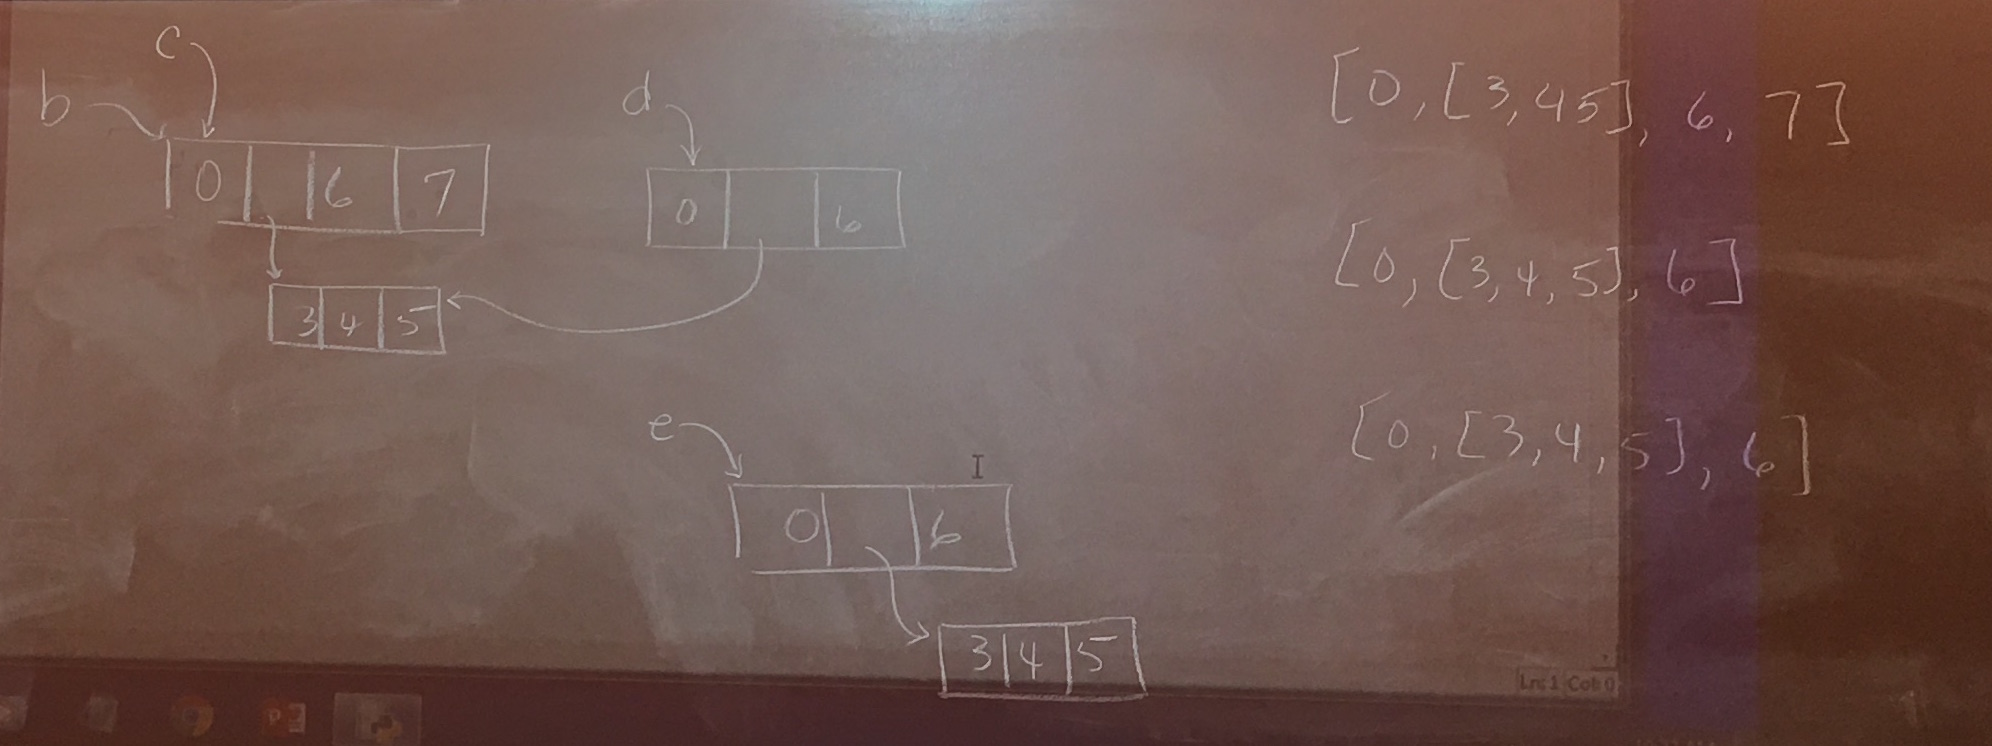 c
b
d
0 6 7
0 6
3 4 5
e
0 6
3 4 5
[0, [3, 4 5], 6, 7]
[0, [3, 4, 5], 6]
[0, [3, 4, 5], 6]
Ln: 1 Col: 0